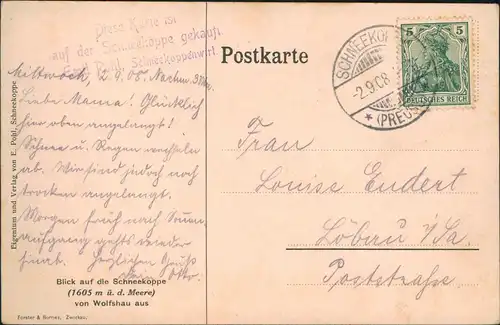 Diese Karte ist
auf der Schneekoppe gekauft
Pohl, Schneekoppenwirt.
Postkarte
SCHNEEKOPPE
-2.9.08
* (PREUSS
5 5
DEUTSCHES REICH
Mittwoch, 2.9.08. Nachm. 3 Uhr.
Liebe Mama! Glücklich
hier oben angelangt!
Schnee u. Regen wechseln
ab. Wir sind jedoch noch
trocken angelangt.
Morgen früh nach Sonnen
aufgang gehts wieder
hinab. Herzlichen Gruß
Dein Otto.
Frau
Louise Endert
Löbau i/Sa.
Poststraße
Eigentum und Verlag von E. Pohl, Schneekoppe
Blick auf die Schneekoppe
(1605 m ü. d. Meere)
von Wolfshau aus
Förster & Borries, Zwickau.